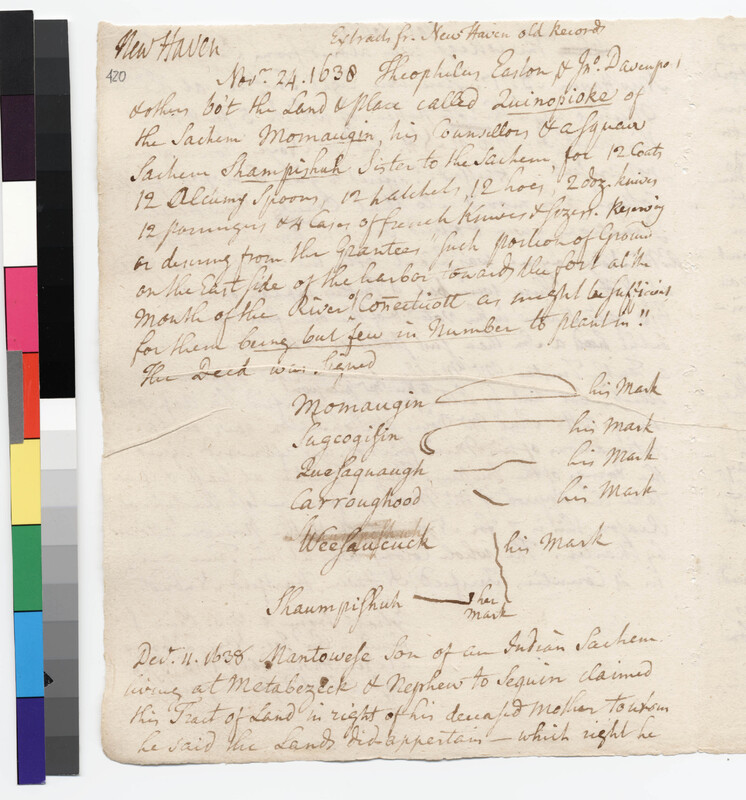 New Haven
Extracts fr. New Haven old Records
420
Novr. 24. 1638 Theophilus Eaton & Jno. Davenpo
& others bo't the Land & place called Quinopioke of
the Sachem Momaugin, his Counsellors & a squaw
Sachem Shampishuh Sister to the Sachem, for 12 Coats
12 Alcumy Spoons, 12 hatchets, 12 hoes, 2 doz. knives
12 porringers & 4 Cases of french knives & sizers. Reserving
or desiring from the Grantees "such portion of Ground
on the East side of the harbor towards the fort at the
Mouth of the River of Conecticott as might be sufficient
for them being but few in Number to plant in."
The Deed was Signed
Momaugin his Mark
Sugcogisin his Mark
Quesaquaugh his Mark
Carroughood his Mark
Weesaucuck his Mark
Shaumpishuh her
Mark
Decr. 11. 1638 Mantowese Son of an Indian Sachem
living at Metabezeck & Nephew to Sequin claimed
this Tract of Land in right of his deceased Mother to whom
he said the Lands did appertain — which right he